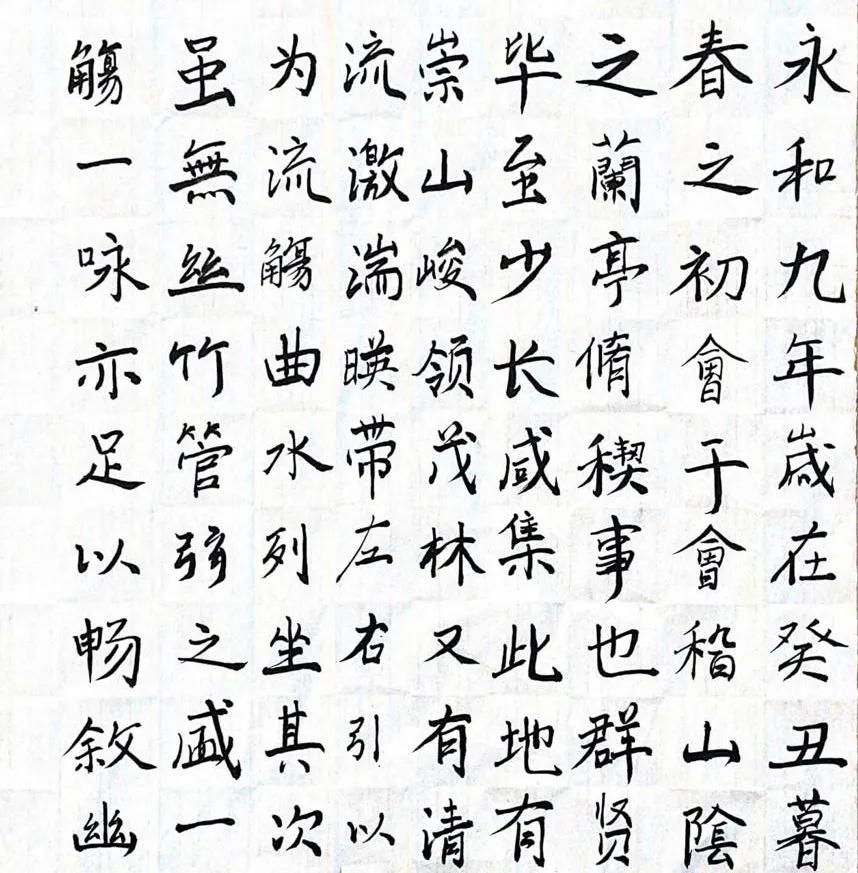 永和九年歲在癸丑暮
春之初會于會稽山陰
之蘭亭脩稧事也群贤
毕至少长咸集此地有
崇山峻领茂林又有清
流激湍暎带左右引以
为流觴曲水列坐其次
虽無丝竹管弦之盛一
觴一咏亦足以畅敘幽